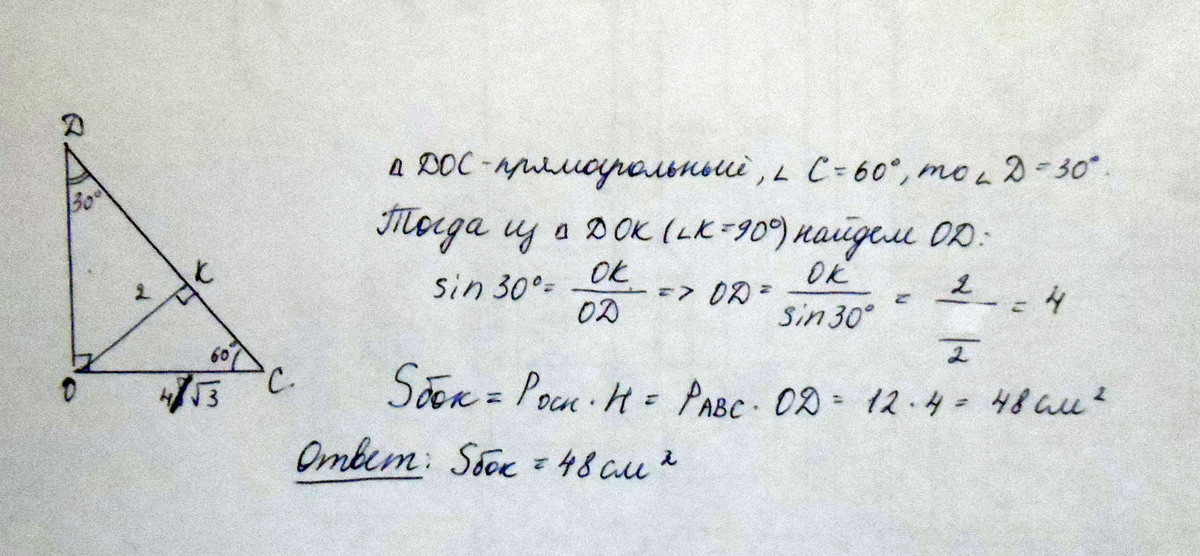 D
30°
K
2
60°
O
4√3
C.
△ DOC - прямоугольный, ∠ C = 60°, то ∠ D = 30°.
Тогда из △ DOK (∠K = 90°) найдем OD:
sin 30° = OK / OD => OD = OK / sin 30° = 2 / / 2 = 4
Sбок = Pосн · H = PABC · OD = 12 · 4 = 48 см²
Ответ: Sбок = 48 см²